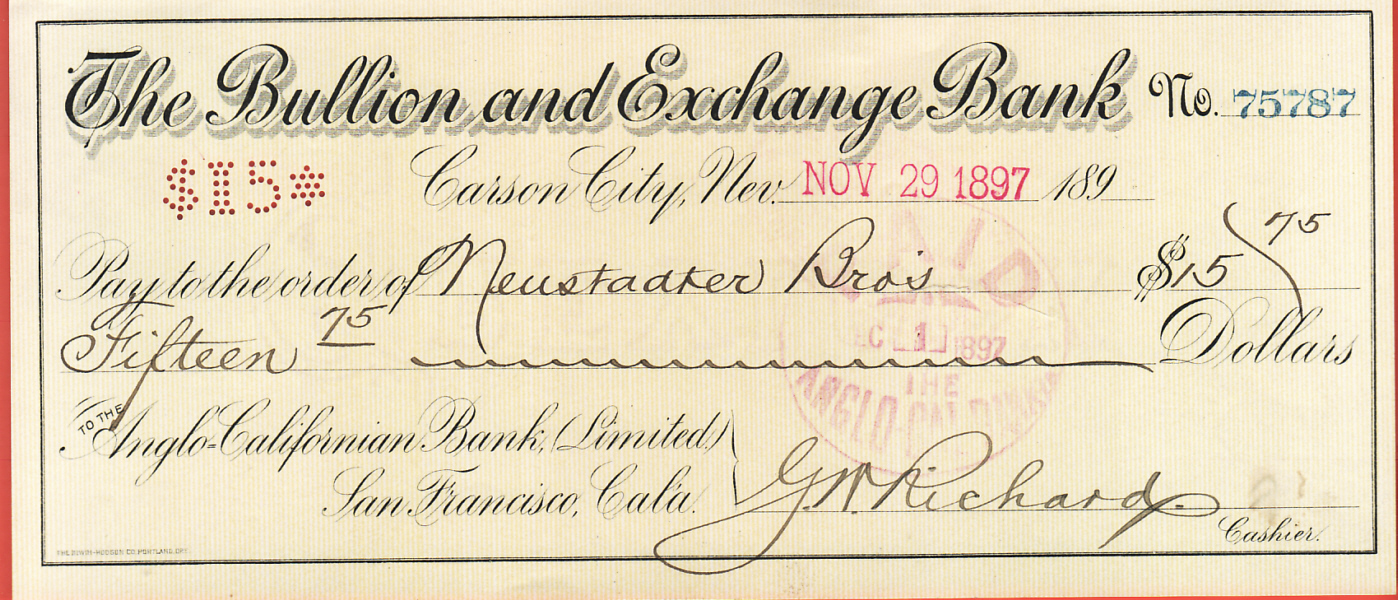 The Bullion and Exchange Bank No. 75787
$15* Carson City, Nev. NOV 29 1897 189
Pay to the order of Neustadter Bro's $15 75
Fifteen 75 Dollars
PAID
1 1897
THE
ANGLO-CAL
TO THE
Anglo-Californian Bank, (Limited)
San Francisco, Cala.
G.W. Richard
Cashier.